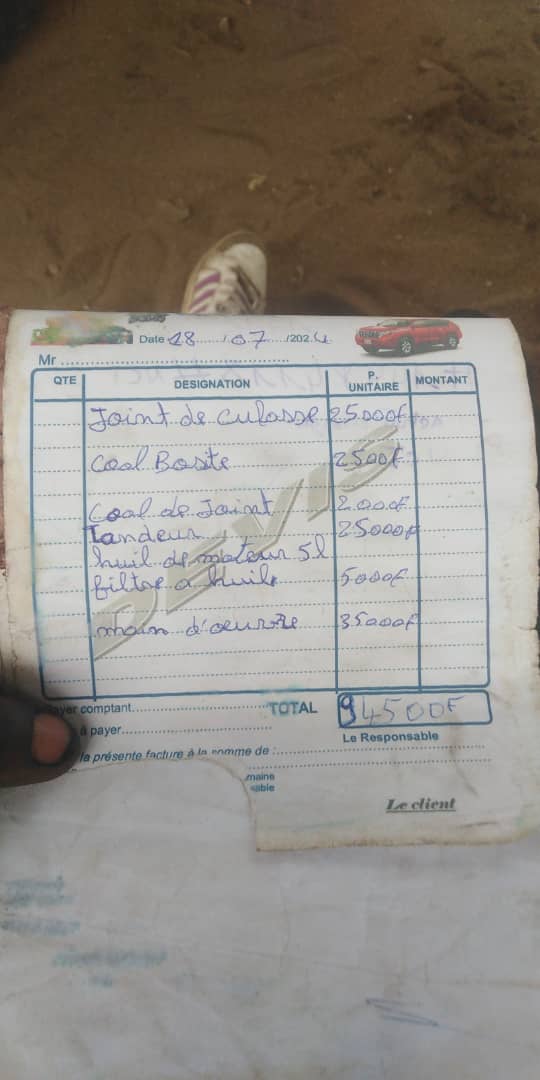 Date 18 / 07 /2024
Mr
QTE DESIGNATION P. UNITAIRE MONTANT
Joint de culasse 25000f
Coal Boste 2500f
Coal de Joint 2000f
Tandeur 25000f
huil de moteur 5l
filtre a huile 5000f
mhain d'oeuvre 35000f
DEVIS
ayer comptant TOTAL 94500F
à payer Le Responsable
la présente facture à la somme de :
maine
sable
Le client